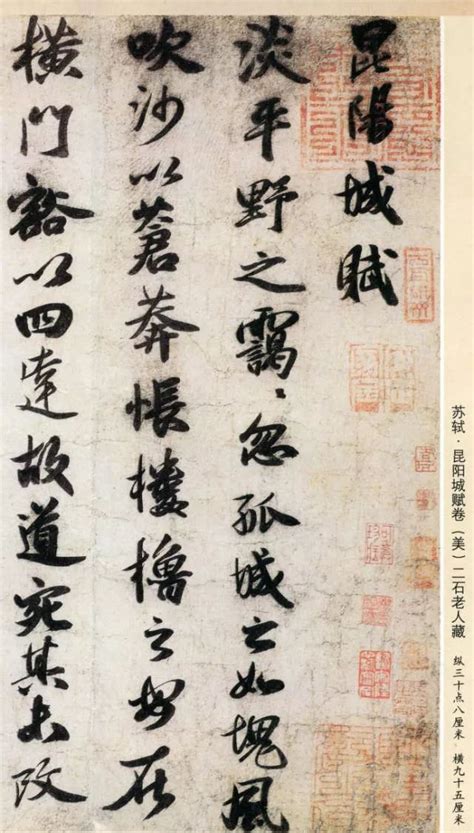 苏轼·昆阳城赋卷（美）二石老人藏 纵三十点八厘米 横九十五厘米
昆陽城賦
淡平野之靄〻忽孤城之如塊風
吹沙以蒼莽悵樓櫓之安在
橫門豁以四達故道宛其未改